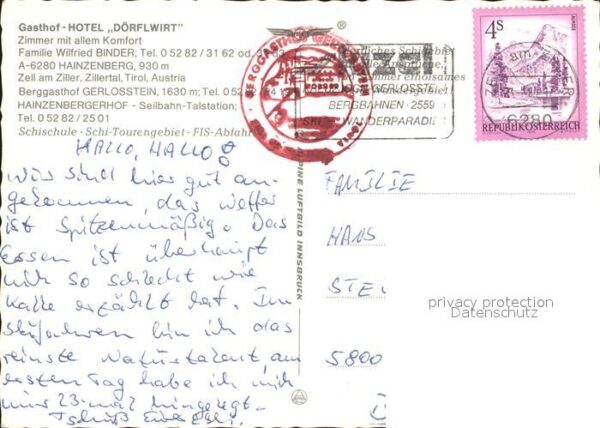 Gasthof - HOTEL „DÖRFLWIRT"
Zimmer mit allem Komfort
Familie Wilfried BINDER; Tel. 0 52 82 / 31 62 od.
A-6280 HAINZENBERG, 930 m
Zell am Ziller, Zillertal, Tirol, Austria
Berggasthof GERLOSSTEIN, 1630 m; Tel. 0 52
HAINZENBERGERHOF - Seilbahn-Talstation;
Tel. 0 52 82 / 25 01
Schischule - Schi-Tourengebiet - FIS-Abfahrt
HALLO, HALLO!
Wir sind hier gut an-
gekommen, das Wetter
ist Spitzenmäßig. Das
Essen ist überhaupt
nich so schlecht wie
Kalle erzählt hat. Im
Skifahren bin ich das
reinste Naturtalent, am
ersten Tag habe ich mich
nur 23-mal hingelegt.
Tschüß Eure
®
Schigebiet
erholsames
GERLOSSTE
BERGBAHNEN 2559
WANDERPARADIE
BERGGASTHOF
ALPINE LUFTBILD INNSBRUCK
4S
am
6280
REPUBLIK ÖSTERREICH
FAMILIE
HANS
STE
5800
privacy protection
Datenschutz